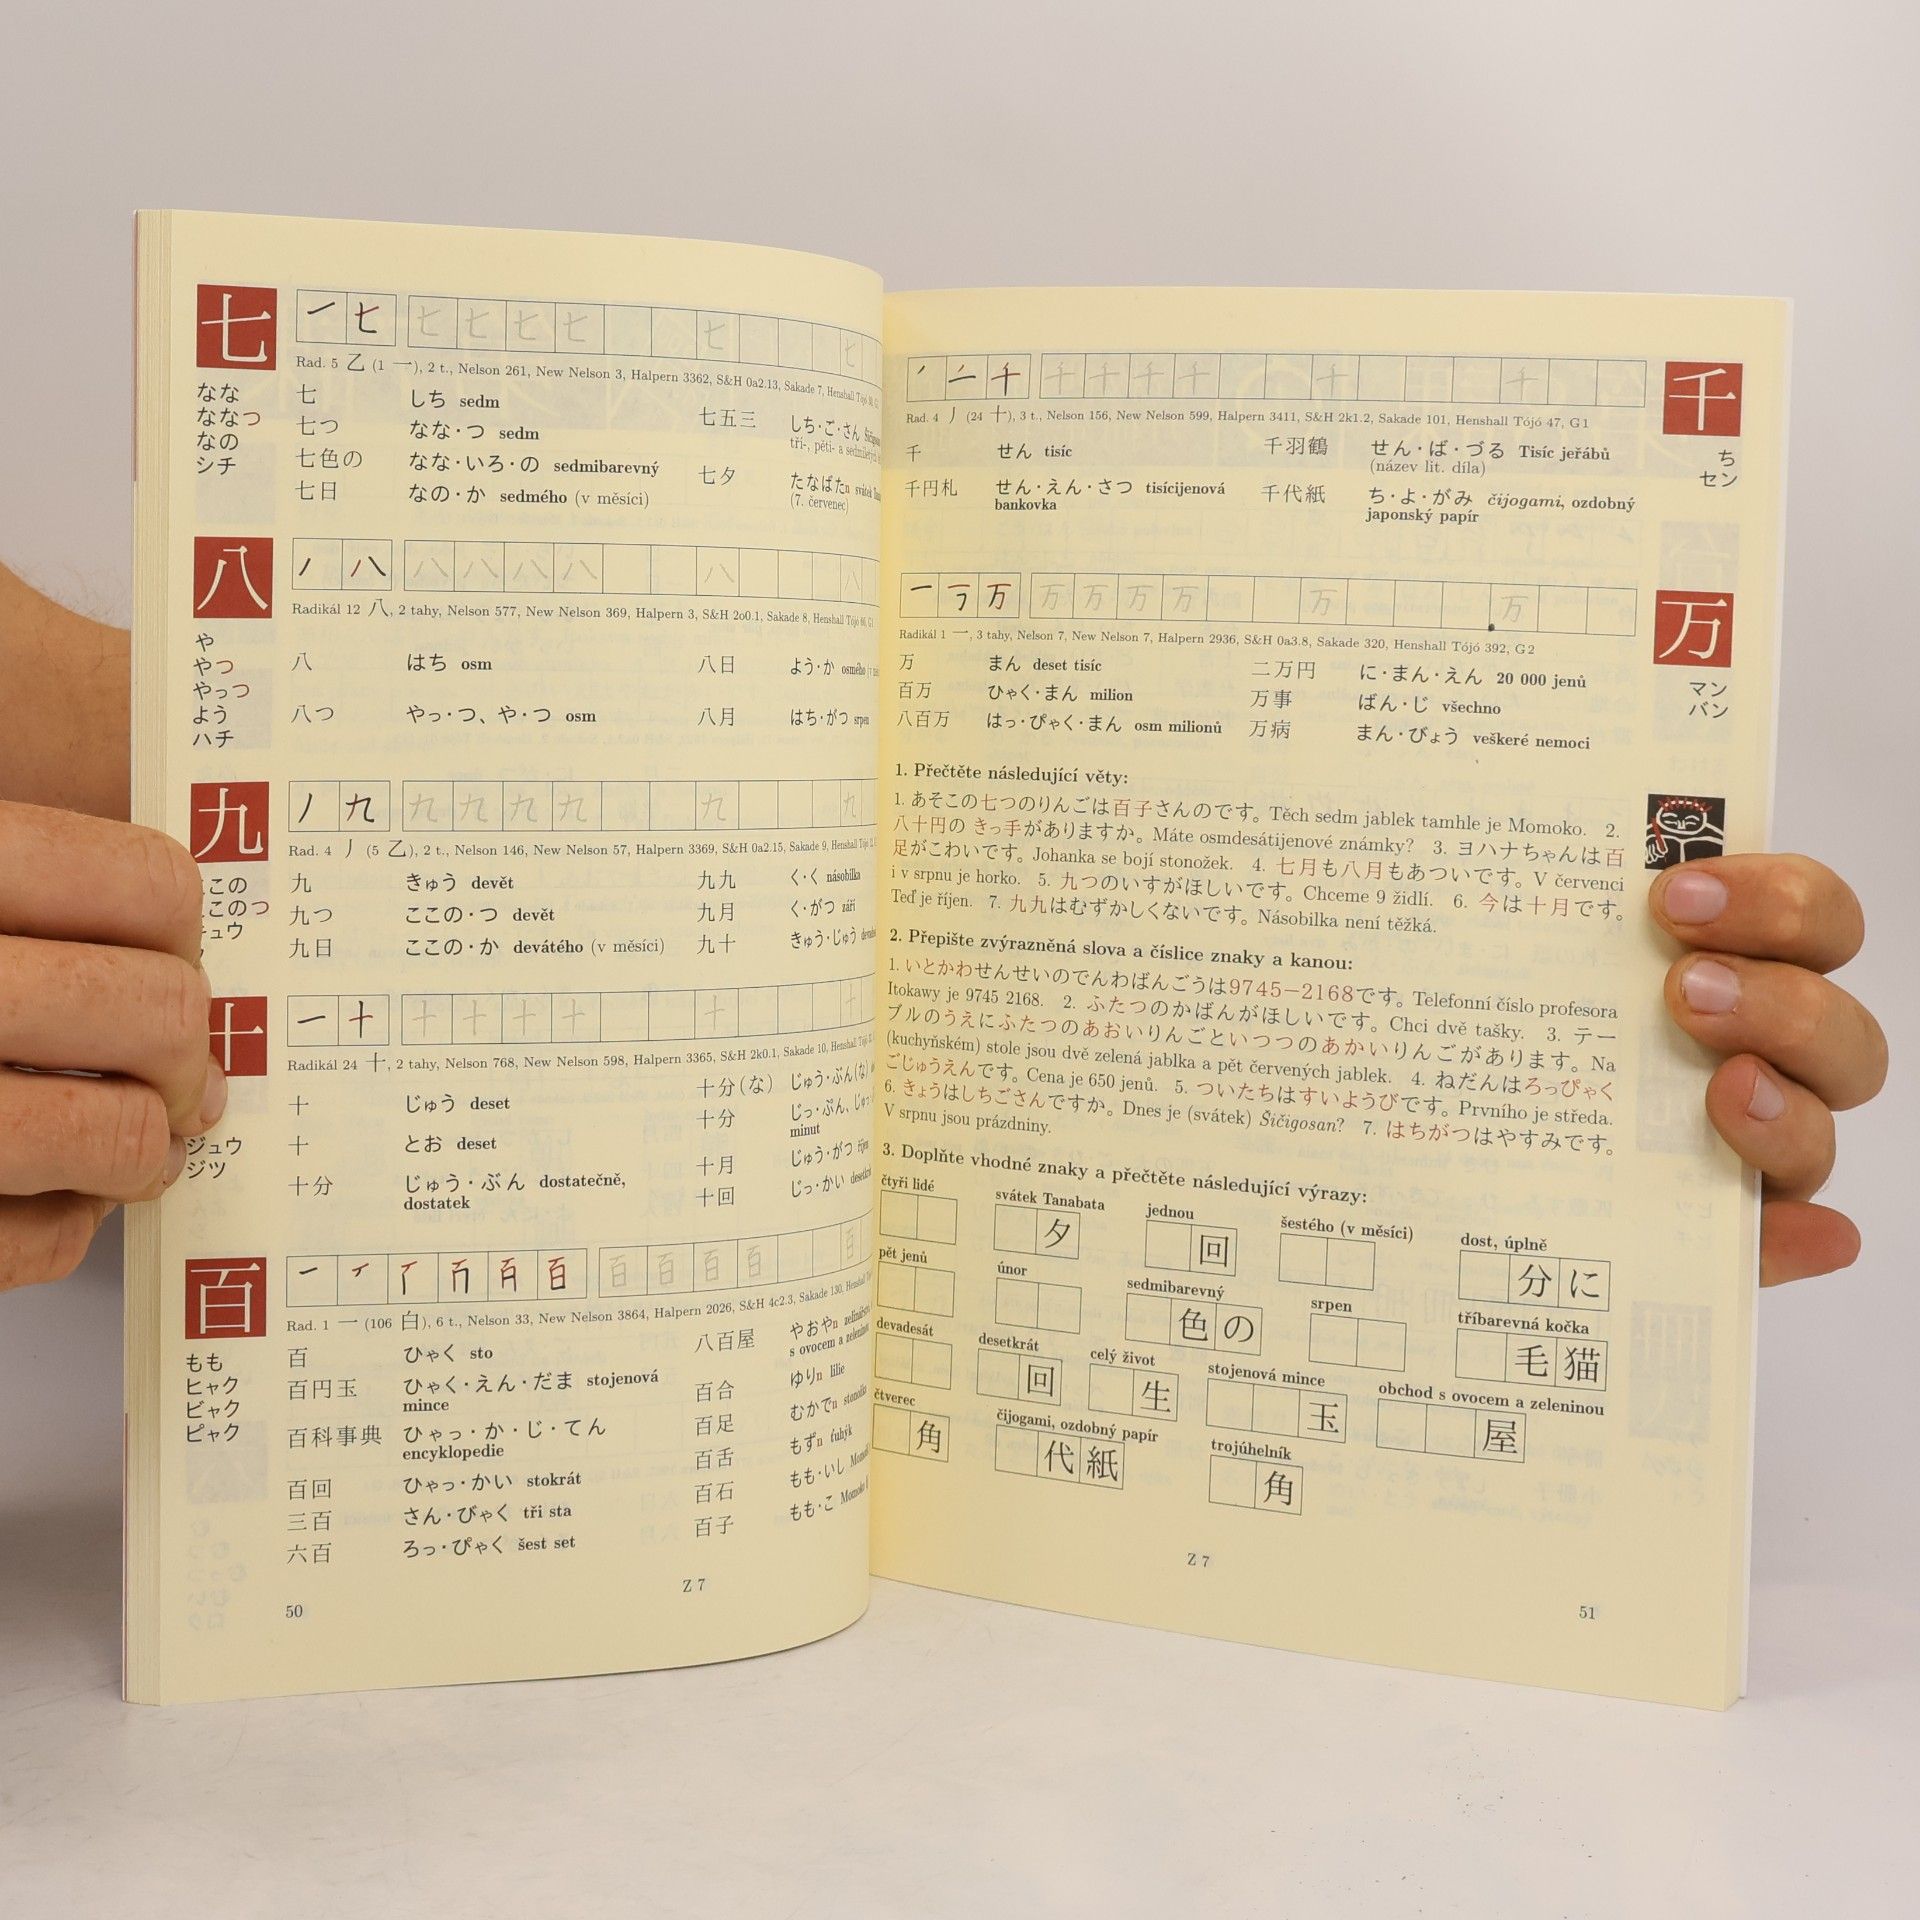 七
なな
ななつ
なの
シチ
一 七 七 七 七 七 七 七
Rad. 5 乙 (1 一), 2 t., Nelson 261, New Nelson 3, Halpern 3362, S&H 0a2.13, Sakade 7, Henshall Tójó
七 しち sedm
七つ なな・つ sedm
七色の なな・いろ・の sedmibarevný
七日 なの・か sedmého (v měsíci)
七五三 しち・ご・さん
tří-, pěti- a
七夕 たなばたn svátek
(7. červenec)
八
や
やつ
やっつ
よう
ハチ
ノ 八 八 八 八 八 八 八
Radikál 12 八, 2 tahy, Nelson 577, New Nelson 369, Halpern 3, S&H 2o0.1, Sakade 8, Henshall Tójó
八 はち osm
八つ やっ・つ、や・つ osm
八日 よう・か osmého
八月 はち・がつ srpen
九
ここの
ここのつ
キュウ
ノ 九 九 九 九 九 九 九
Rad. 4 丿 (5 乙), 2 t., Nelson 146, New Nelson 57, Halpern 3369, S&H 0a2.15, Sakade 9, Henshall Tójó
九 きゅう devět
九つ ここの・つ devět
九日 ここの・か devátého (v měsíci)
九九 く・く násobilka
九月 く・がつ září
九十 きゅう・じゅう
十
ジュウ
ジツ
一 十 十 十 十 十 十 十
Radikál 24 十, 2 tahy, Nelson 768, New Nelson 598, Halpern 3365, S&H 2k0.1, Sakade 10, Henshall Tójó
十 じゅう deset
十 とお deset
十分 じゅう・ぶん dostatečně,
dostatek
十分(な) じゅう・ぶん(な)
十分 じっ・ぷん、じゅっ
minut
十月 じゅう・がつ říjen
十回 じっ・かい desetkrát
百
もも
ヒャク
ビャク
ピャク
百 百 百 百 百 百
Rad. 1 一 (106 白), 6 t., Nelson 33, New Nelson 3864, Halpern 2026, S&H 4c2.3, Sakade 130, Henshall
百 ひゃく sto
百円玉 ひゃく・えん・だま stojenová
mince
百科事典 ひゃっ・か・じ・てん
encyklopedie
百回 ひゃっ・かい stokrát
三百 さん・びゃく tři sta
六百 ろっ・ぴゃく šest set
八百屋 やおやn
s ovocem a zeleninou
百合 ゆりn lilie
百足 むかでn stonožka
百舌 もずn ťuhýk
百石 もも・いし
百子 もも・こ Momoko
Z 7
50
千
ち
セン
千 千 千 千 千 千 千
Rad. 4 丿 (24 十), 3 t., Nelson 156, New Nelson 599, Halpern 3411, S&H 2k1.2, Sakade 101, Henshall Tójó 47, G1
千 せん tisíc
千円札 せん・えん・さつ tisícijenová
bankovka
千羽鶴 せん・ば・づる Tisíc jeřábů
(název lit. díla)
千代紙 ち・よ・がみ čijogami, ozdobný
japonský papír
万
マン
バン
一 万 万 万 万 万 万 万
Radikál 1 一, 3 tahy, Nelson 7, New Nelson 7, Halpern 2936, S&H 0a3.8, Sakade 320, Henshall Tójó 392, G2
万 まん deset tisíc
百万 ひゃく・まん milion
八百万 はっ・ぴゃく・まん osm milionů
二万円 に・まん・えん 20 000 jenů
万事 ばん・じ všechno
万病 まん・びょう veškeré nemoci
1. Přečtěte následující věty:
1. あそこの七つのりんごは百子さんのです。Těch sedm jablek tamhle je Momoko. 2.
八十円の きっ手がありますか。Máte osmdesátijenové známky? 3. ヨハナちゃんは百
足がこわいです。Johanka se bojí stonožek. 4. 七月も八月もあついです。V červenci
i v srpnu je horko. 5. 九つのいすがほしいです。Chceme 9 židlí. 6. 今は十月です。
Teď je říjen. 7. 九九はむずかしくないです。Násobilka není těžká.
2. Přepište zvýrazněná slova a číslice znaky a kanou:
1. いとかわせんせいのでんわばんごうは9745−2168です。Telefonní číslo profesora
Itokawy je 9745 2168. 2. ふたつのかばんがほしいです。Chci dvě tašky. 3. テー
ブルのうえにふたつのあおいりんごといつつのあかいりんごがあります。Na
(kuchyňském) stole jsou dvě zelená jablka a pět červených jablek. 4. ねだんはろっぴゃく
ごじゅうえんです。Cena je 650 jenů. 5. ついたちはすいようびです。Prvního je středa.
6. きょうはしちごさんですか。Dnes je (svátek) Šičigosan? 7. はちがつはやすみです。
V srpnu jsou prázdniny.
3. Doplňte vhodné znaky a přečtěte následující výrazy:
čtyři lidé
svátek Tanabata
夕
jednou
回
šestého (v měsíci)
dost, úplně
分に
pět jenů
únor
sedmibarevný
色の
srpen
tříbarevná kočka
毛猫
devadesát
desetkrát
回
celý život
生
stojenová mince
玉
obchod s ovocem a zeleninou
屋
čtverec
角
čijogami, ozdobný papír
代紙
trojúhelník
角
Z 7
51